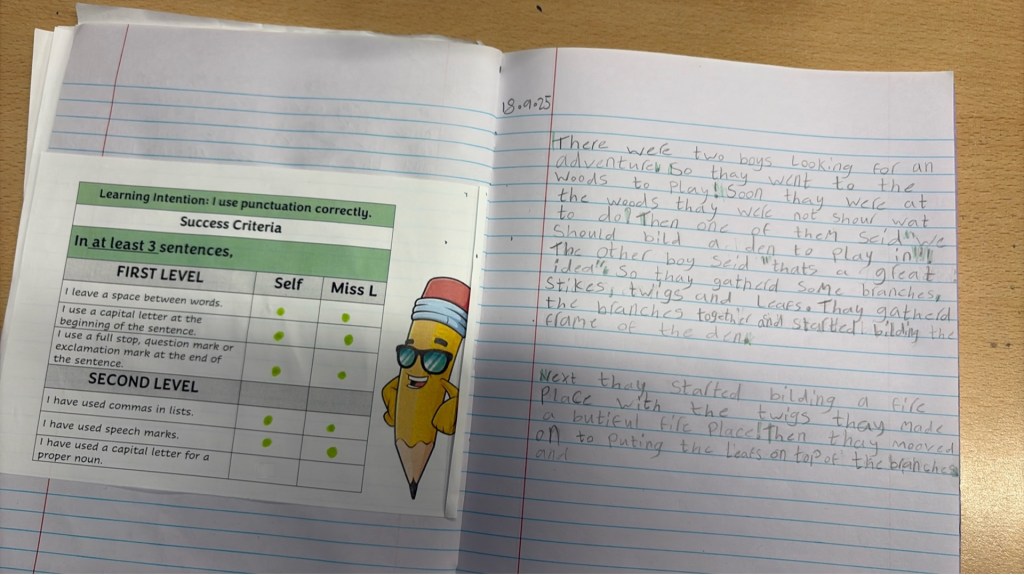 Learning Intention: I use punctuation correctly.
Success Criteria
In at least 3 sentences,
FIRST LEVEL Self Miss L
I leave a space between words.
I use a capital letter at the
beginning of the sentence.
I use a full stop, question mark or
exclamation mark at the end of
the sentence.
SECOND LEVEL
I have used commas in lists.
I have used speech marks.
I have used a capital letter for a
proper noun.
18.9.25
There were two boys looking for an
adventure. So thay went to the
woods to play! Soon thay were at
the woods thay were not shour wat
to do! Then one of them seid "we
should bild a den to play in"!
The other boy seid "thats a great
idea". So thay gatherd some branches,
stikes, twigs and leafs. Thay gatherd
the branches together and started bilding the
frame of the den.
Next thay started bilding a fire
place with the twigs thay made
a butiful fire place! Then thay mooved
on to puting the leafs on top of the branches
and